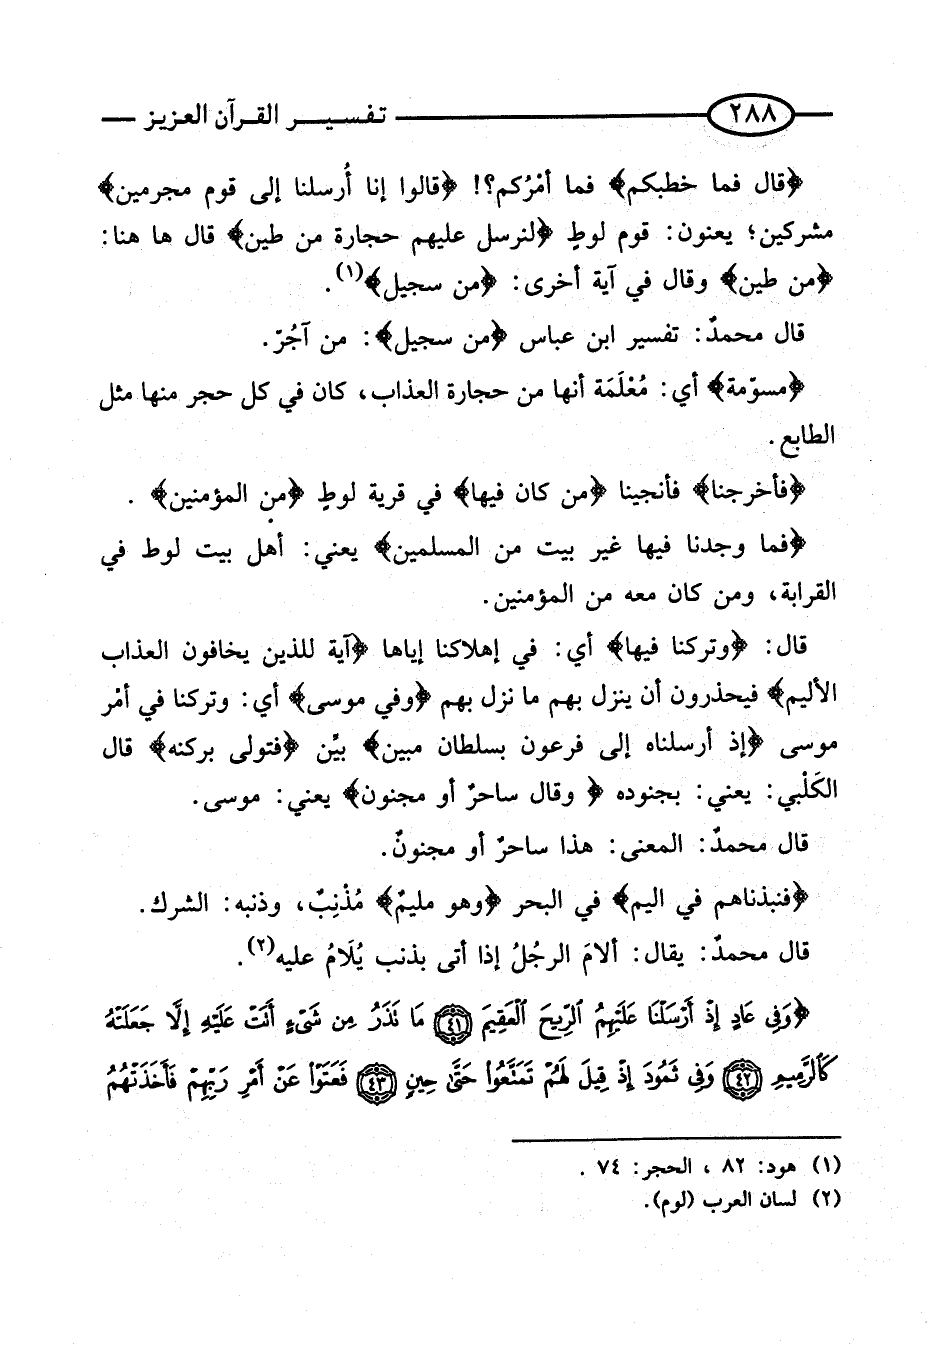 ٢٨٨ تفسير القرآن العزيز
﴿قال فما خطبكم﴾ فما أمْرُكم؟! ﴿قالوا إنا أُرسلنا إلى قوم مجرمين﴾
مشركين؛ يعنون: قوم لوطٍ ﴿لنرسل عليهم حجارة من طين﴾ قال ها هنا:
﴿من طين﴾ وقال في آية أخرى: ﴿من سجيل﴾(١).
قال محمدٌ: تفسير ابن عباس ﴿من سجيل﴾: من آجُرّ.
﴿مسوّمة﴾ أي: مُعْلَمَة أنها من حجارة العذاب، كان في كل حجر منها مثل
الطابع.
﴿فأخرجنا﴾ فأنجينا ﴿من كان فيها﴾ في قرية لوطٍ ﴿من المؤمنين﴾ .
﴿فما وجدنا فيها غير بيت من المسلمين﴾ يعني: أهل بيت لوط في
القرابة، ومن كان معه من المؤمنين.
قال: ﴿وتركنا فيها﴾ أي: في إهلاكنا إياها ﴿آية للذين يخافون العذاب
الأليم﴾ فيحذرون أن ينزل بهم ما نزل بهم ﴿وفي موسى﴾ أي: وتركنا في أمْر
موسى ﴿إذ أرسلناه إلى فرعون بسلطان مبين﴾ بيِّن ﴿فتولى بركنه﴾ قال
الكَلْبي: يعني: بجنوده ﴿ وقال ساحرٌ أو مجنون﴾ يعني: موسى.
قال محمدٌ: المعنى: هذا ساحرٌ أو مجنونٌ.
﴿فنبذناهم في اليم﴾ في البحر ﴿وهو مليمٌ﴾ مُذْنِبٌ، وذنبه: الشرك.
قال محمدٌ: يقال: ألامَ الرجُلُ إذا أتى بذنب يُلَامُ عليه(٢).
﴿وَفِى عَادٍ إِذْ أَرْسَلْنَا عَلَيْهِمُ ٱلرِّيحَ ٱلْعَقِيمَ ٤١ مَا نَذَرُ مِن شَىْءٍ أَتَتْ عَلَيْهِ إِلَّا جَعَلَتْهُ
كَٱلرَّمِيمِ ٤٢ وَفِى ثَمُودَ إِذْ قِيلَ لَهُمْ تَمَتَّعُوا۟ حَتَّىٰ حِينٍ ٤٣ فَعَتَوْا۟ عَنْ أَمْرِ رَبِّهِمْ فَأَخَذَتْهُمُ
(١) هود: ٨٢ ، الحجر: ٧٤ .
(٢) لسان العرب (لوم).